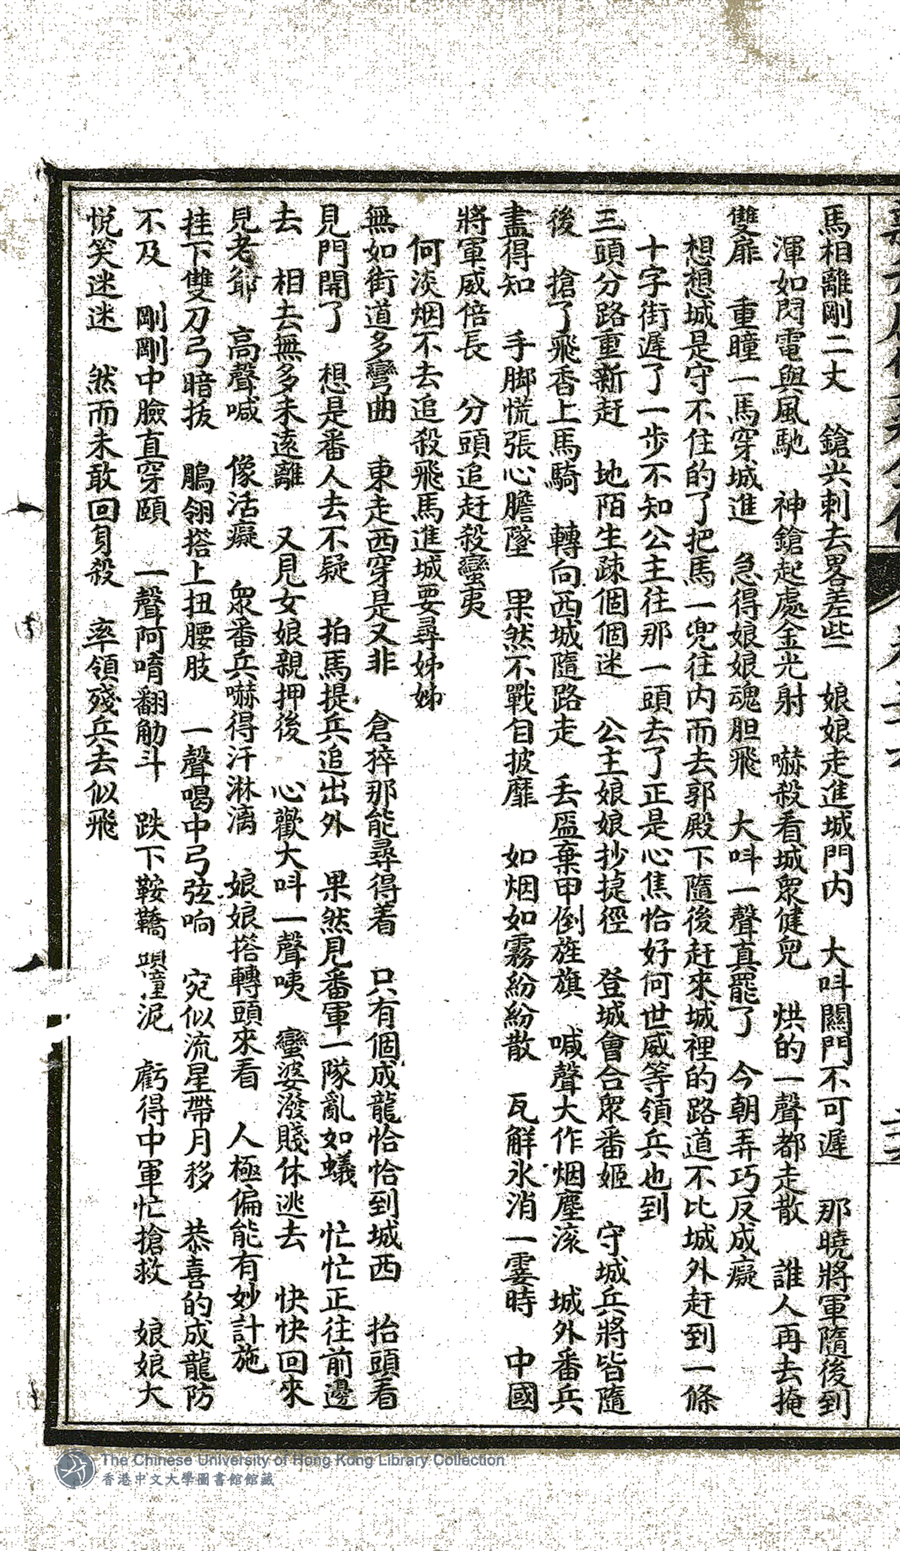 馬相離剛二丈　鎗尖刺去畧差些　娘娘走進城門内　大呌關門不可遲　那曉將軍隨後到
渾如閃電與風馳　神鎗起處金光射　嚇殺看城衆健兒　烘的一聲都走散　誰人再去掩
雙扉　重瞳一馬穿城進　急得娘娘魂胆飛　大呌一聲真罷了　今朝弄巧反成癡
想想城是守不住的了把馬一兜往内而去郭殿下隨後赶來城裡的路道不比城外赶到一條
十字街遲了一步不知公主往那一頭去了正是心焦恰好何世威等領兵也到
三頭分路重新赶　地陌生疎個個迷　公主娘娘抄捷徑　登城會合衆番姬　守城兵將皆隨
後　搶了飛香上馬騎　轉向西城隨路走　丢盔棄甲倒旌旗　喊聲大作烟塵滚　城外番兵
盡得知　手脚慌張心膽墜　果然不戰自披靡　如烟如霧紛紛散　瓦解氷消一霎時　中國
將軍威倍長　分頭追赶殺蠻夷
何淡烟不去追殺飛馬進城要尋姊姊
無如街道多彎曲　東走西穿是又非　倉猝那能尋得着　只有個成龍恰恰到城西　抬頭看
見門開了　想是番人去不疑　拍馬提兵追出外　果然見番軍一隊亂如蟻　忙忙正往前邊
去　相去無多未遠離　又見女娘親押後　心歡大呌一聲咦　蠻婆潑賤休逃去　快快回來
見老爺　高聲喊　像活癡　衆番兵嚇得汗淋漓　娘娘搭轉頭來看　人極偏能有妙計施
挂下雙刀弓暗拔　鵰翎搭上扭腰肢　一聲喝中弓弦响　宛似流星帶月移　恭喜的成龍防
不及　剛剛中臉直穿頤　一聲阿唷翻觔斗　跌下鞍鞽泥　虧得中軍忙搶救　娘娘大
悦笑迷迷　然而未敢回身殺　率領殘兵去似飛
The Chinese University of Hong Kong Library Collection
香港中文大學圖書館館藏